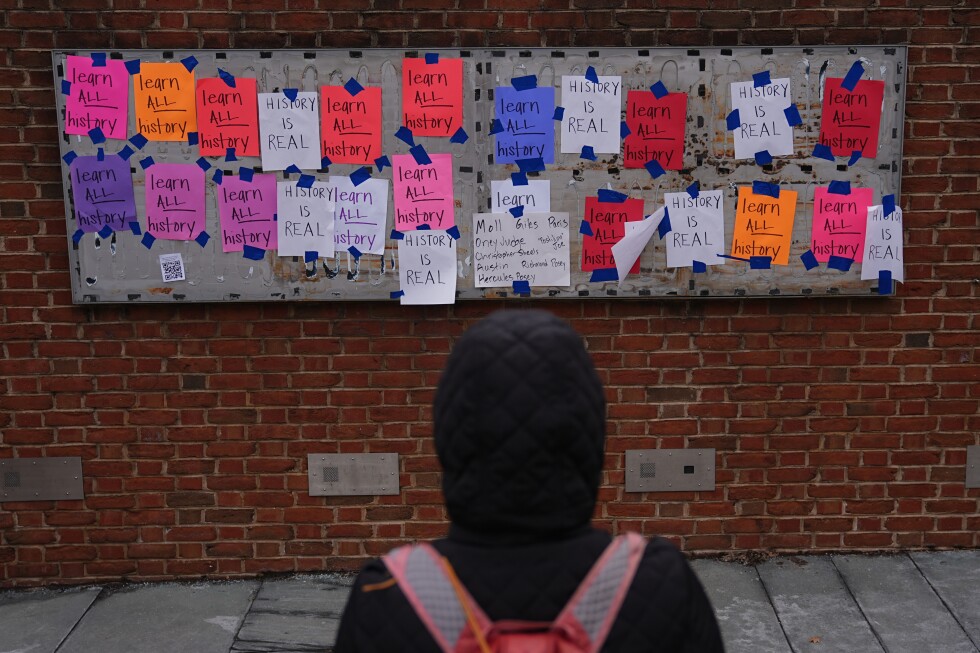 learn
ALL
history
learn
ALL
history
learn
ALL
history
HISTORY
IS
REAL
learn
ALL
history
learn
ALL
history
learn
ALL
history
HISTORY
IS
REAL
learn
ALL
history
HISTORY
IS
REAL
learn
ALL
history
learn
ALL
history
learn
ALL
history
learn
ALL
history
HISTORY
IS
REAL
learn
ALL
history
learn
ALL
history
HISTORY
IS
REAL
learn
Moll Giles Paris
Oney Judge Joe
Christopher Sheels
Austin Richmond Posey
Hercules Posey
learn
ALL
history
HISTORY
IS
REAL
learn
ALL
history
learn
ALL
history
HISTORY
IS
REAL